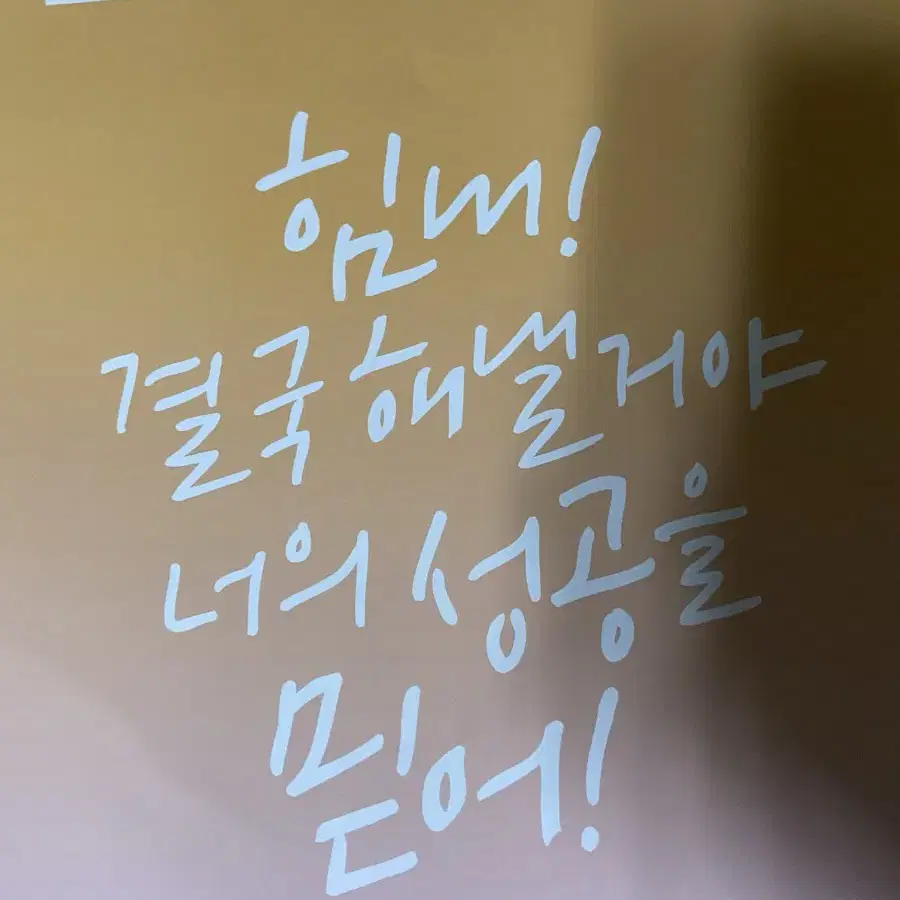 힘내!
결국 해낼거야
너의 성공을
믿어!